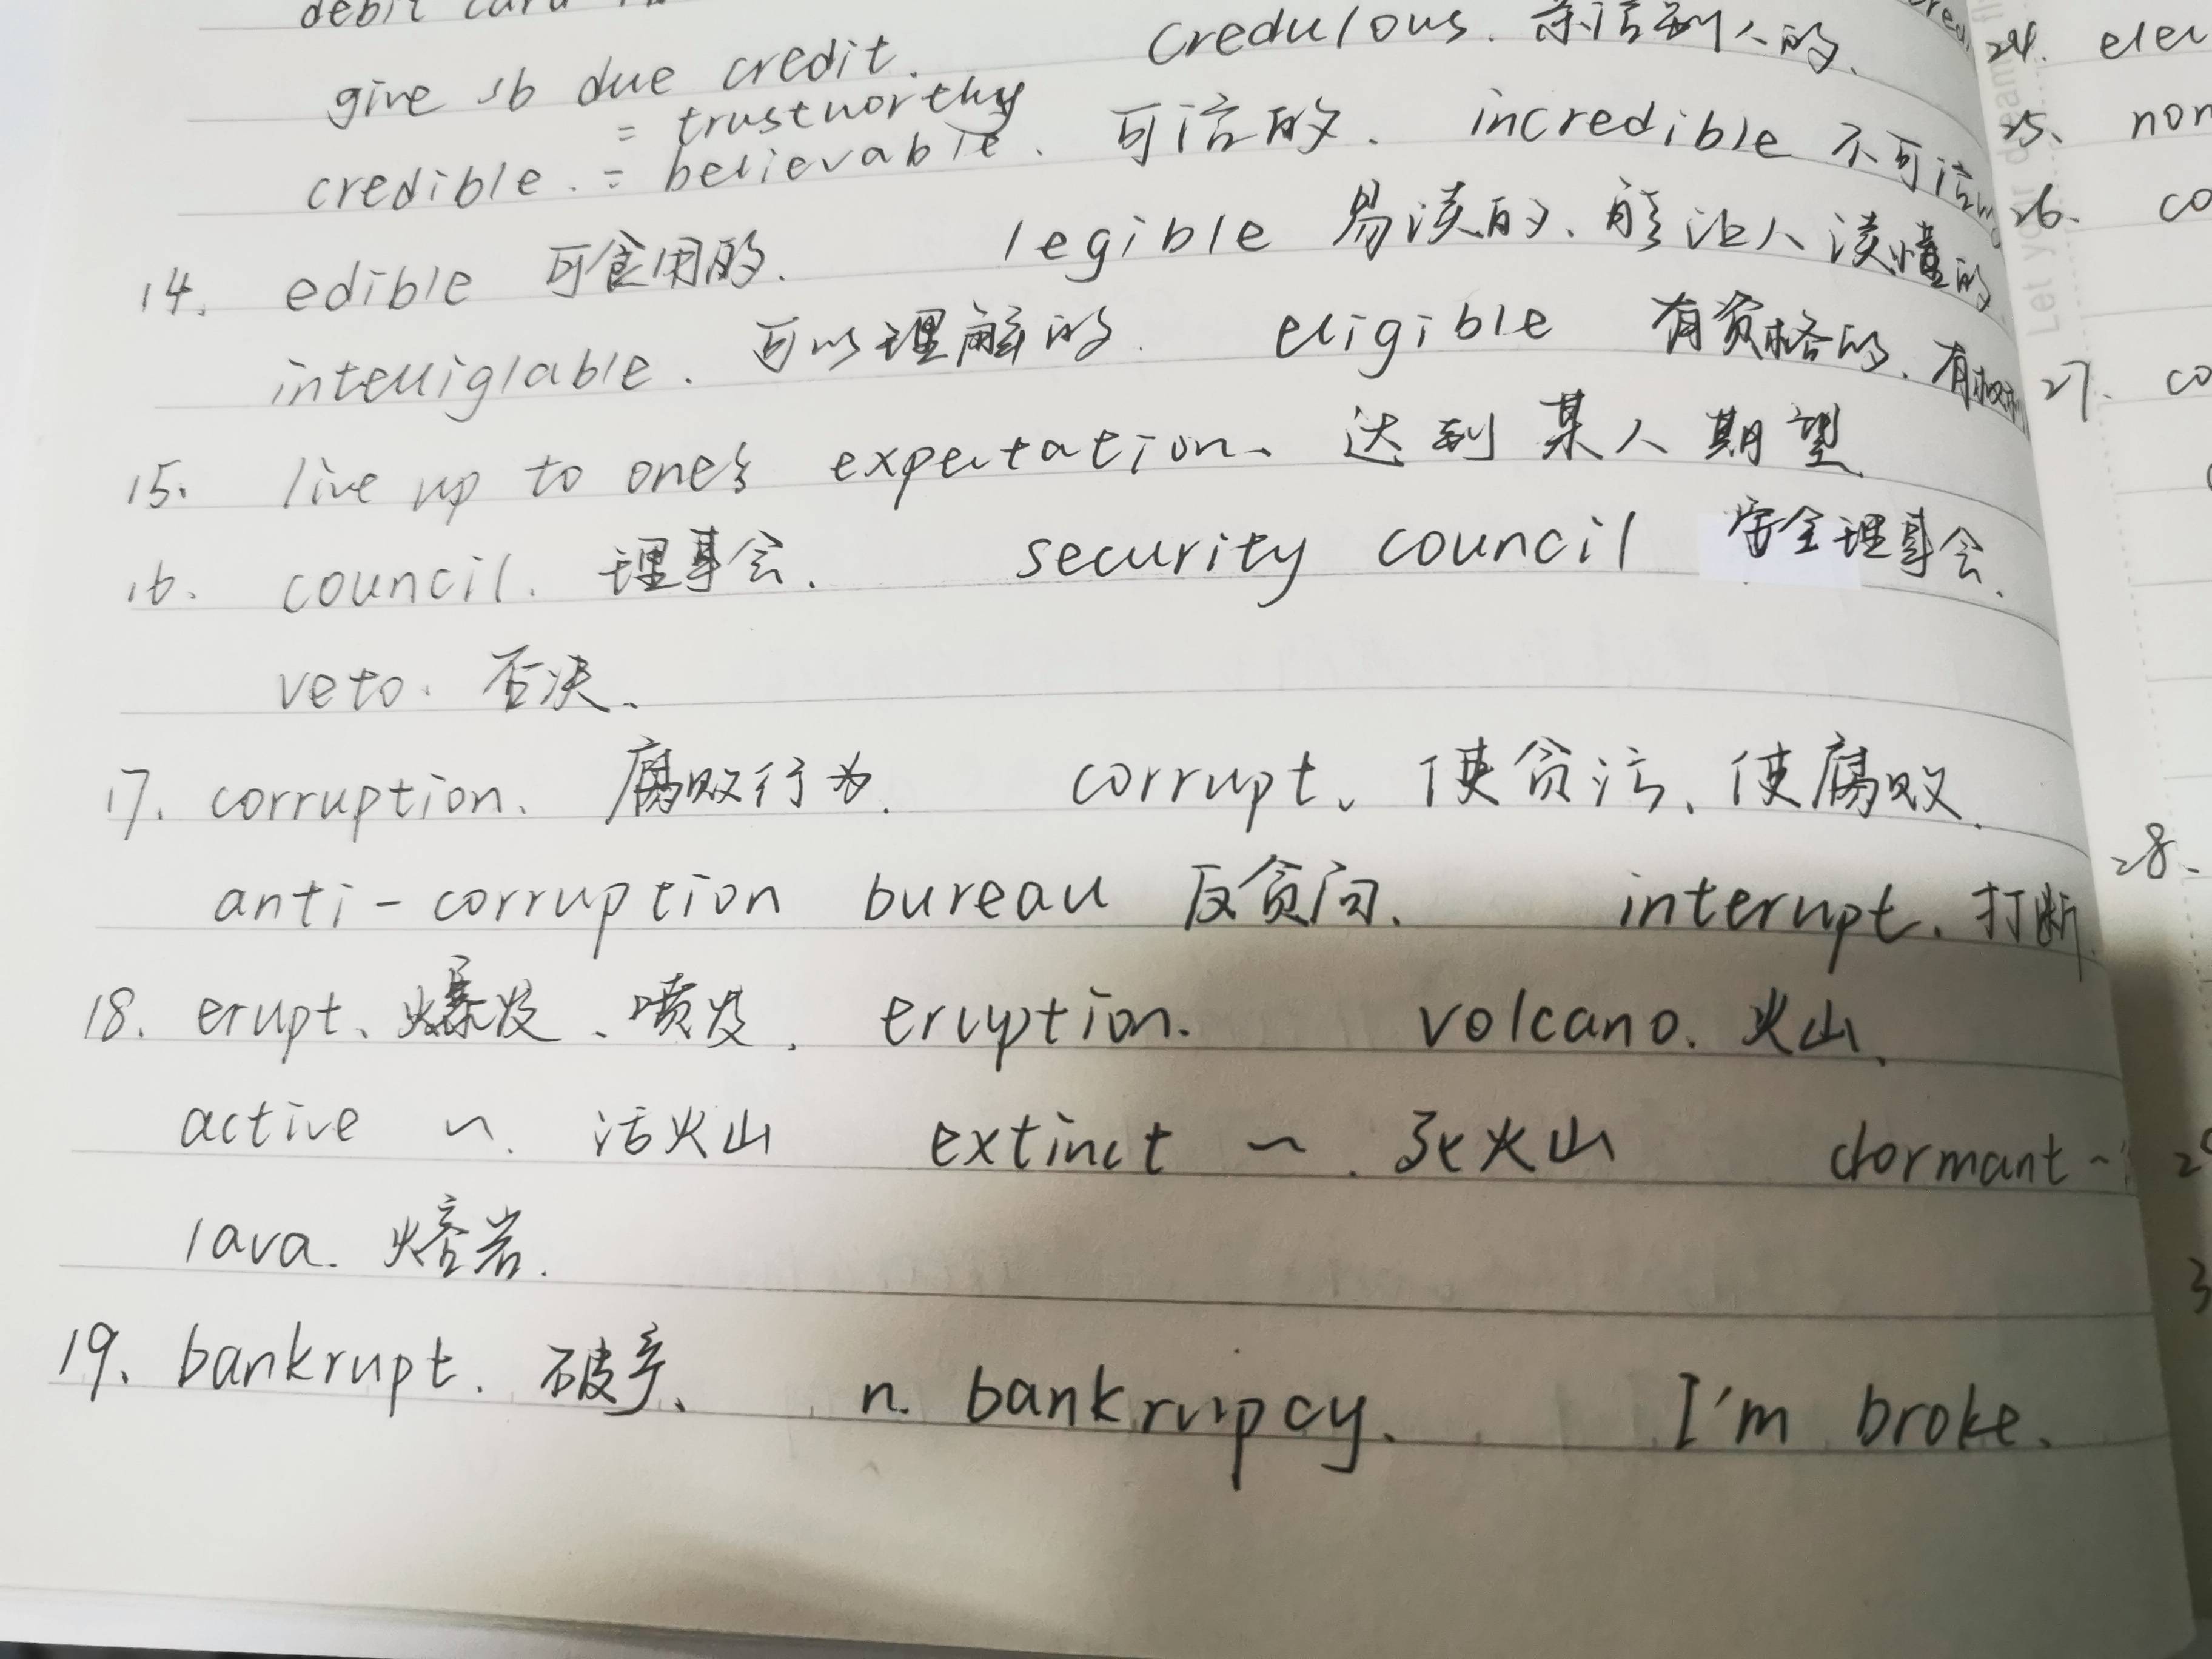 debit card
give sb due credit. credulous. 亲信别人的.
= trustworthy
credible. = believable. 可信的. incredible 不可信的
14. edible 可食用的. legible 易读的、能让人读懂的
intelliglable. 可以理解的. eligible 有资格的、有权利
15. live up to one's expectation. 达到某人期望.
16. council. 理事会. security council 安全理事会.
veto. 否决.
17. corruption. 腐败行为. corrupt. 使贪污、使腐败.
anti-corruption bureau 反贪局. interupt. 打断.
18. erupt、爆发、喷发. eruption. volcano. 火山.
active ~. 活火山 extinct ~. 死火山 dormant ~
lava. 熔岩.
19. bankrupt. 破产. n. bankrupcy. I'm broke.
24. elec
25. non
26. co
27. co
28.
Let your dream fl